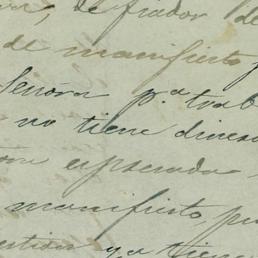 de fiador de
de manifiesto
Señora pª trab
no tiene diners
espresada
manifiesto, pu
ya tiene